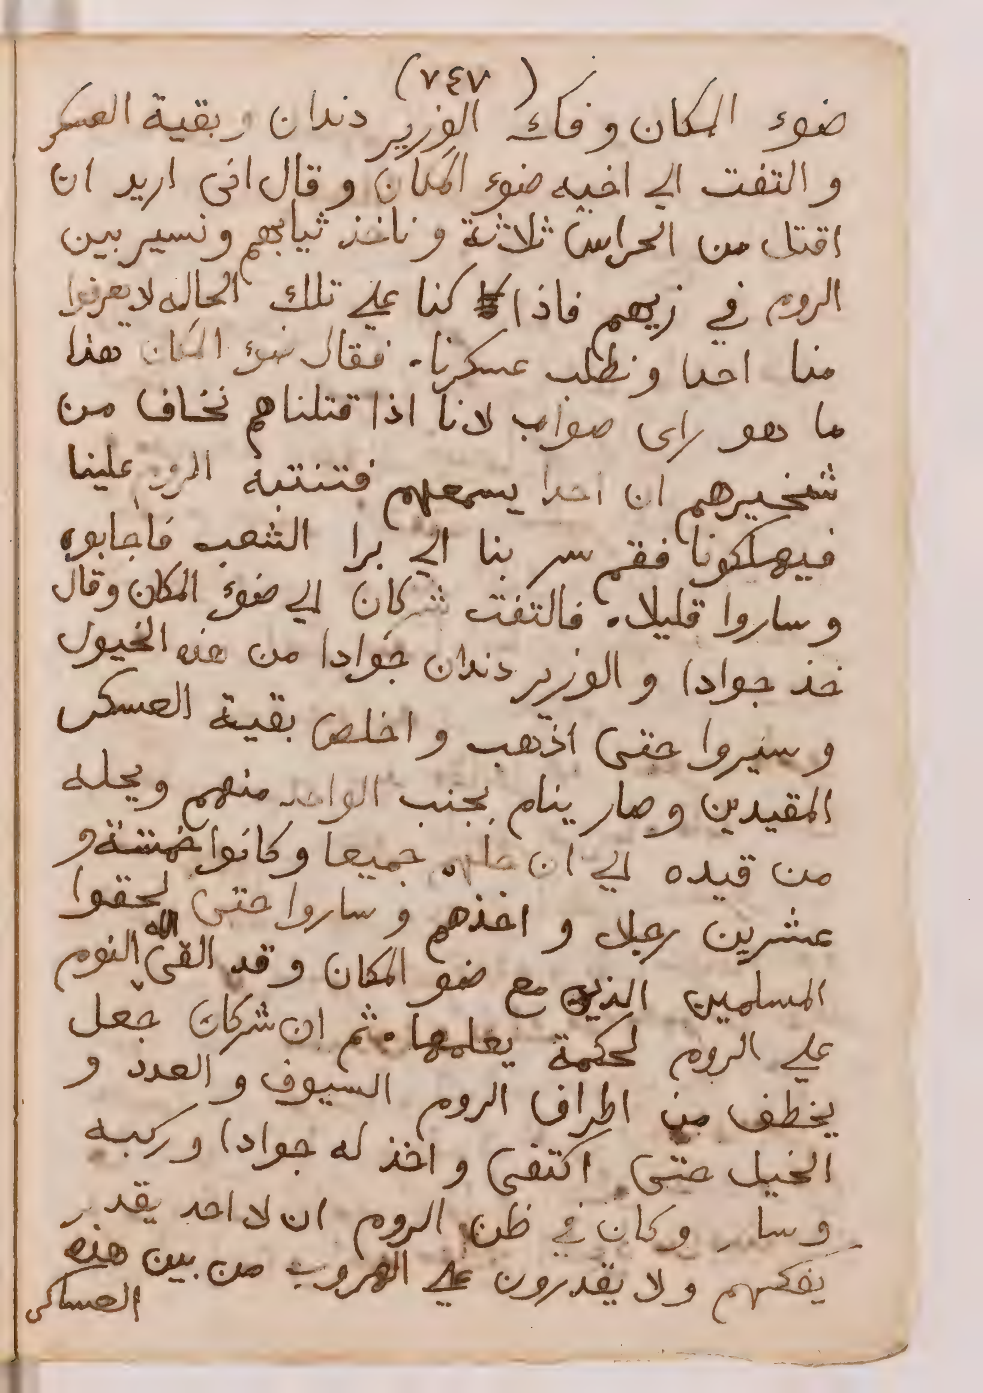 (٧٤٧)
ضوء المكان وفك الوزير دندان وبقية العسكر
والتفت الي اخيه ضوء المكان وقال انى اريد ان
اقتل من الحراس ثلاثة وناخذ ثيابهم ونسير بين
الروم في زيهم فاذا كنا علي تلك الحاله لا يعرفوا
منا احدا ونطلب عسكرنا. فقال ضوء المكان هذا
ما هو راى صواب لانا اذا قتلناهم نخاف من
شخيرهم ان احدا يسمعهم فتنتبه الروم علينا
فيهلكونا فقم سر بنا الي برا الشعب فاجابوه
وساروا قليلا. فالتفت شركان الي ضوء المكان وقال
خذ جوادا والوزير دندان جوادا من هذه الخيول
وسيروا حتى اذهب واخلص بقية العسكر
المقيدين وصار ينام بجنب الواحد منهم ويحله
من قيده الي ان حلهم جميعا وكانوا خمسة و
عشرين رجلا واخذهم وساروا حتى لحقوا
المسلمين الذين مع ضو المكان وقد القى الله النوم
علي الروم لحكمة يعلمها. ثم ان شركان جعل
يخطف من اطراف الروم السيوف والعدد و
الخيل حتى اكتفى واخذ له جوادا وركبه
وسار وكان في ظن الروم ان لا احد يقدر
يفكهم ولا يقدرون علي الهروب من بين هذه
العساكر